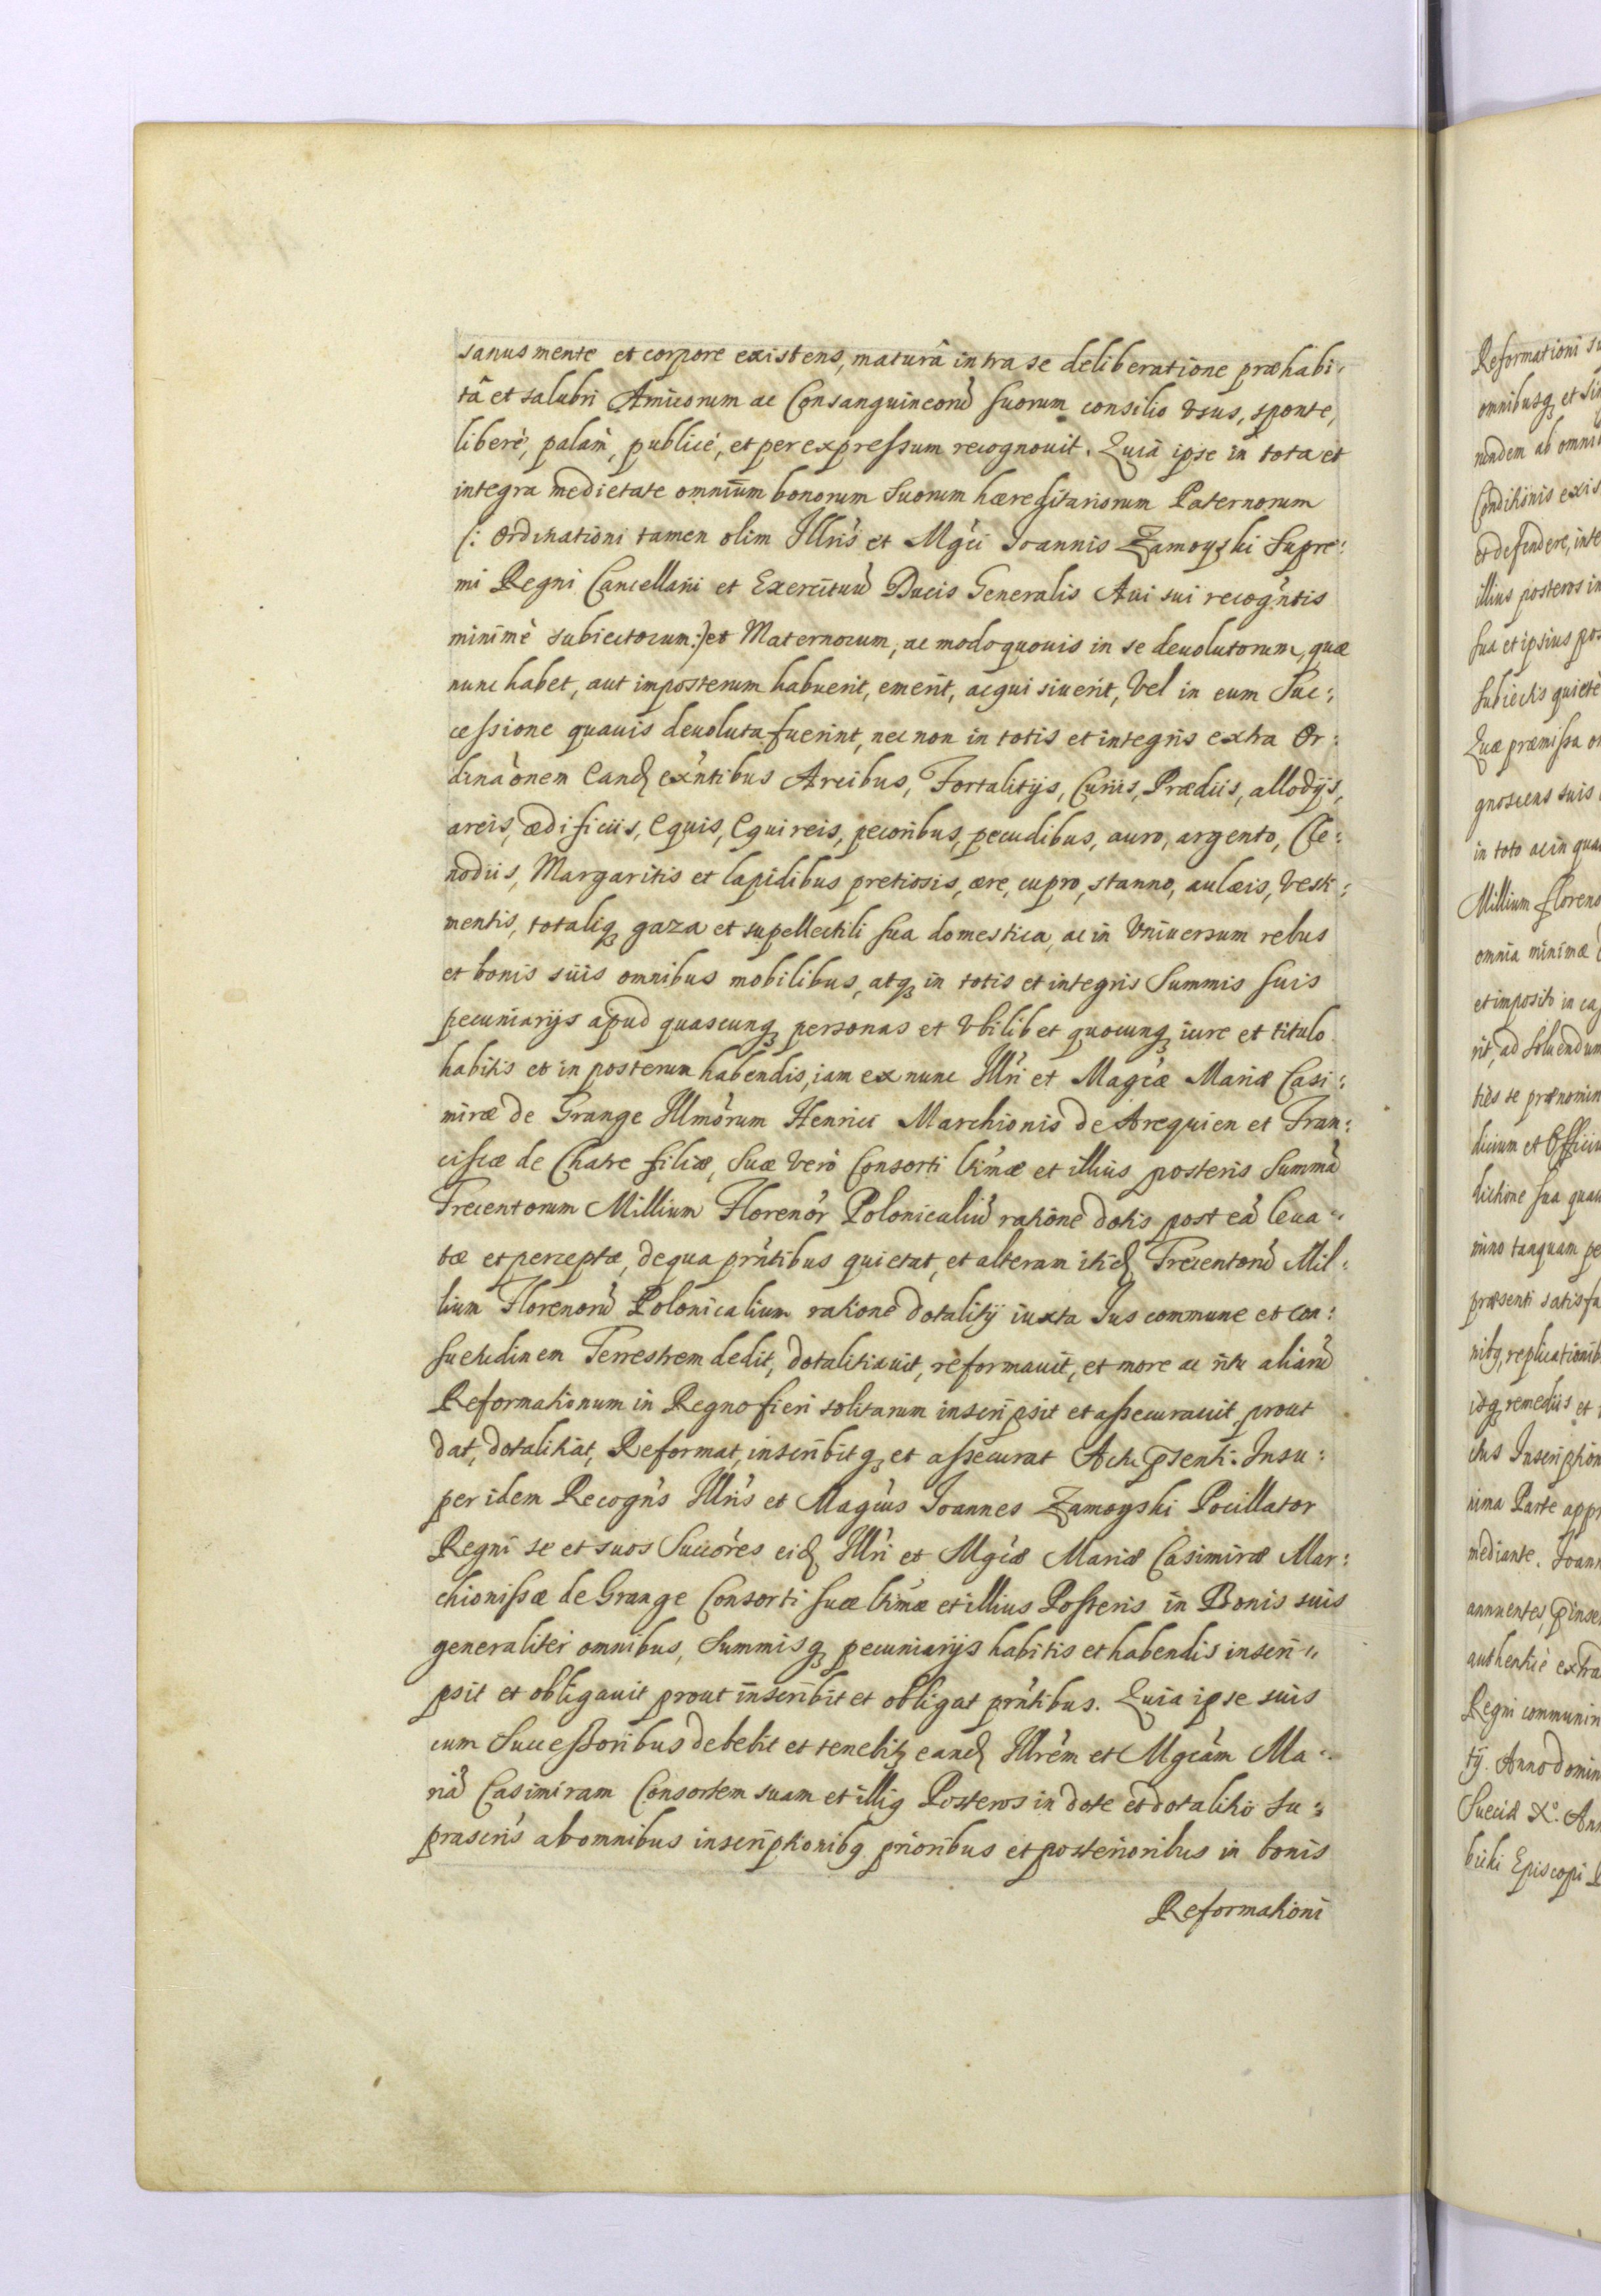 sanus mente et corpore existens, maturâ intra se deliberatione præhabi:
tâ et salubri Amicorum ac Consanguineorũ suorum consilio vsus, sponte,
liberè, palàm, publicè, et per expressum recognouit. Quià ipse in tota et
integra medietate omnium bonorum suorum hæreditariorum Paternorum
(: Ordinationi tamen olim Illris et Mgci Joannis Zamoyski Supre:
mi Regni Cancellarij et Exercituũ Ducis Generalis Aui sui recogntis
minimè subiectorum:) et Maternorum, ac modo quouis in se deuolutorum, quæ
nunc habet, aut imposterum habuerit, emerit, acquisiuerit, Vel in eum Suc:
cessione quauis deuoluta fuerint, nec non in totis et integris extra Or:
dinaonem eand exntibus Arcibus, Fortalitijs, Curiis, Prædiis, allodijs,
areis, ædificiis, Equis, Equireis, pecoribus, pecudibus, auro, argento, Cle:
nodiis, Margaritis et lapidibus pretiosis, ære, cupro, stanno, aulæis, vesti:
mentis, totaliq gaza et supellectili sua domestica, ac in Vniuersum rebus
et bonis suis omnibus mobilibus, atq in totis et integris Summis suis
pecuniarijs apud quascunq personas et Vbilibet quocunq iure et titulo
habitis et in posterum habendis, iam ex nunc Illri et Magcæ Mariæ Casi:
miræ de Grange Illmorum Henrici Marchionis de Arequien et Fran:
ciscæ de Chatre filiæ, Suæ Verò Consorti ltimæ et illius posteris Summã
Trecentorum Millium Florenor Polonicaliũ ratione dotis post eã leua:
tæ et perceptæ, de qua prntibus quietat, et alteram itid Trecentorũ Mil:
lium Florenorũ Polonicalium ratione dotalitij iuxta Jus commune et con:
suetudinem Terrestrem dedit, dotalitiauit, reformauit, et more ac ritu aliarũ
Reformationum in Regno fieri solitarum inscripsit et assecurauit prout
dat, dotalitiat, Reformat, inscribitq et assecurat Actu psenti. Insu:
per idem Recogns Illris et Magcus Joannes Zamoyski Pocillator
Regni se et suos Succores eid Illri et Mgcæ Mariæ Casimiræ Mar:
chionissæ de Grange Consorti suæ ltimæ et illius Posteris in Bonis suis
generaliter omnibus, Summisq pecuniarijs habitis et habendis inscri:
psit et obligauit prout inscribit et obligat prntibus. Quia ipse suis
cum Successoribus debebit et tenebit eand Illrem et Mgcam Ma:
riã Casimiram Consortem suam et illiq Posteros in dote et dotalitio su:
prascris ab omnibus inscriptionibq prioribus et posterioribus in bonis
Reformationi